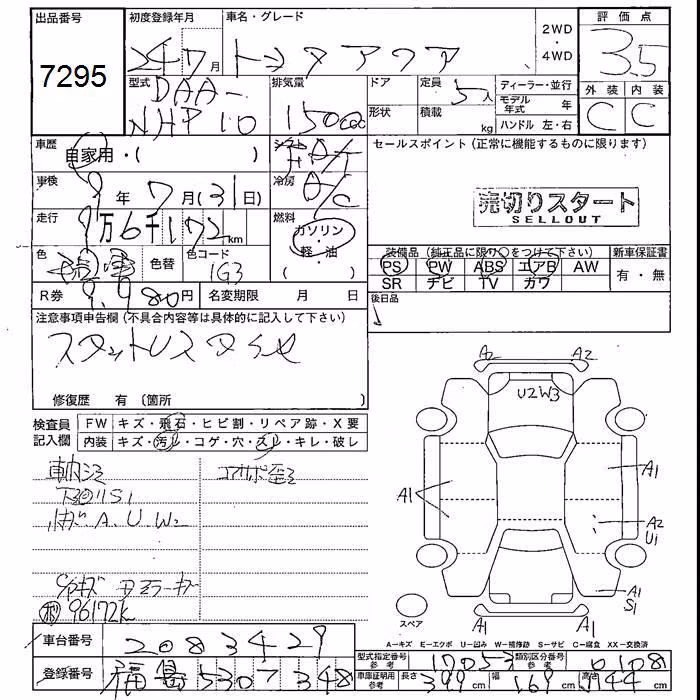 出品番号 初度登録年月 車名・グレード 2WD・4WD 評価点
7295 24 7月 トヨタ アクア 3.5
型式 DAA- 排気量 ドア 定員 5人 ディーラー・並行 外装 内装
NHP10 1500cc 形状 積載 kg モデル年式 年 C C
ハンドル 左・右
車歴 自家用・( ) シフト セールスポイント (正常に機能するものに限ります)
車検 9年7月(31日) 冷房 A/C
売切りスタート
SELLOUT
走行 9万6千172km 燃料 ガソリン・軽油
色 色替 色コード 1G3
装備品 (純正品に限り○をつけて下さい) 新車保証書
PS PW ABS エアB AW 有・無
SR ナビ TV カワ
R券 9,980円 名変期限 月 日 後日品
注意事項申告欄(不具合内容等は具体的に記入して下さい)
スタットレスタイヤ
修復歴 有 (箇所
検査員記入欄 FW キズ・飛石・ヒビ割・リペア跡・X要
内装 キズ・汚れ・コゲ・穴・スレ・キレ・破レ
A2 A2
U2W3
A1
A1
A2
U1
A1
S1
A1 A1
スペア
A.U.W2
96172K
A-キズ E-エクボ U-凹み W-補修跡 S-サビ C-腐食 XX-交換済
車台番号 2083429
型式指定番号 参考 17053 類別区分番号 参考 0108
登録番号 福島 530 7 348
車庫証明用 参考 長さ 399cm 幅 169cm 高さ 144cm